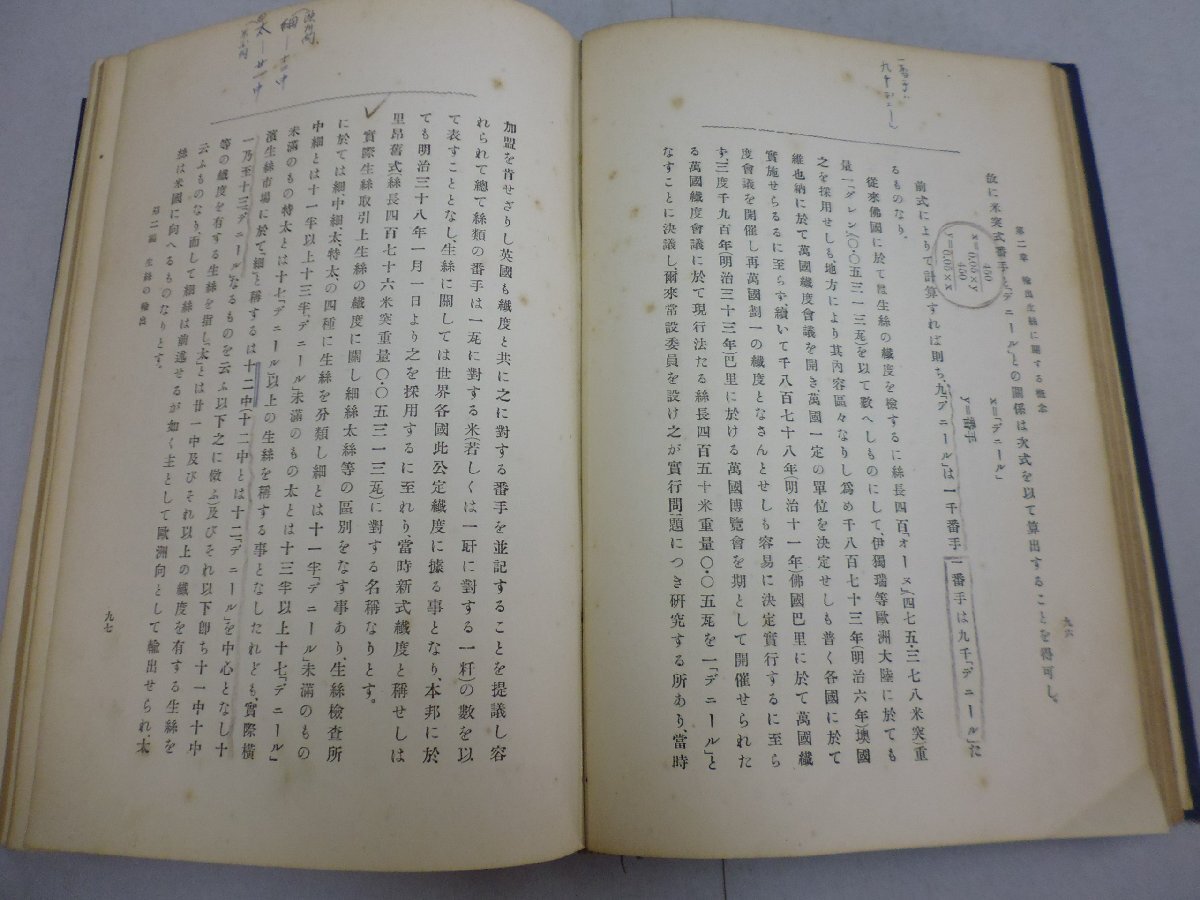 第二章 輸出生絲に關する概念
九六
故に米突式番手と「デニール」との關係は次式を以て算出することを得可し。
x=「デニール」
y=番手
x=450/0.05×y
y=450/0.05×x
前式によりて計算すれば則ち、九「デニール」は一千番手一番手は九千「デニール」た
るものなり。
從來佛國に於ては生絲の纎度を檢するに絲長四百「オーヌ」(四七五・三七八米突)重
量一「グレン」(〇・〇五三一三瓦)を以て數へしものにして、伊獨瑞等歐洲大陸に於ても
之を採用せしも、地方により其內容區々なりし爲め千八百七十三年(明治六年)墺國
維也納に於て萬國纎度會議を開き、萬國一定の單位を決定せしも普く各國に於て
實施せらるるに至らず、續いて千八百七十八年(明治十一年)佛國巴里に於て萬國纎
度會議を開催し再萬國劃一の纎度となさんとせしも容易に決定實行するに至ら
ず、三度千九百年(明治三十三年)巴里に於ける萬國博覽會を期として開催せられた
る萬國纎度會議に於て現行法たる絲長四百五十米突重量〇・〇五瓦を一「デニール」と
なすことに決議し、爾來常設委員を設け之が實行問題につき硏究する所あり、當時
一番手ハ
九千デニール
加盟を肯せざりし英國も纎度と共に之に對する番手を並記することを提議し容
れられて總て絲類の番手は一瓦に對する米(若しくは一瓩に對する一粁)の數を以
て表すこととなし、生絲に關しては世界各國此公定纎度に據る事となり、本邦に於
ても明治三十八年一月一日より之を採用するに至れり、當時新式纎度と稱せしは
里昂舊式(絲長四百七十六米突重量〇・〇五三一三瓦)に對する名稱なりとす。
實際生絲取引上生絲の纎度に關し細絲太絲等の區別をなす事あり、生絲檢査所
に於ては細、中細、太、特太の四種に生絲を分類し細とは十一半「デニール」未滿のもの
中細とは十一半以上十三半「デニール」未滿のもの太とは十三半以上十七「デニール」
未滿のもの特太とは十七「デニール」以上の生絲を稱する事となしたれども、實際橫
濱生絲市場に於て「細」と稱するは十二中(十二中とは十二「デニール」を中心となし十
一乃至十三「デニール」なるものを云ふ以下之に倣ふ)及びそれ以下卽ち十一中十中
等の纎度を有する生絲を指し、「太」とは廿一中及びそれ以上の纎度を有する生絲を
云ふものなり、而して細絲は前述せるが如く主として歐洲向として輸出せられ、太
絲は米國に向へるものなりとす。
第二編 生絲の輸出
九七
歐州向
細—十二中
太—廿一中
米國向